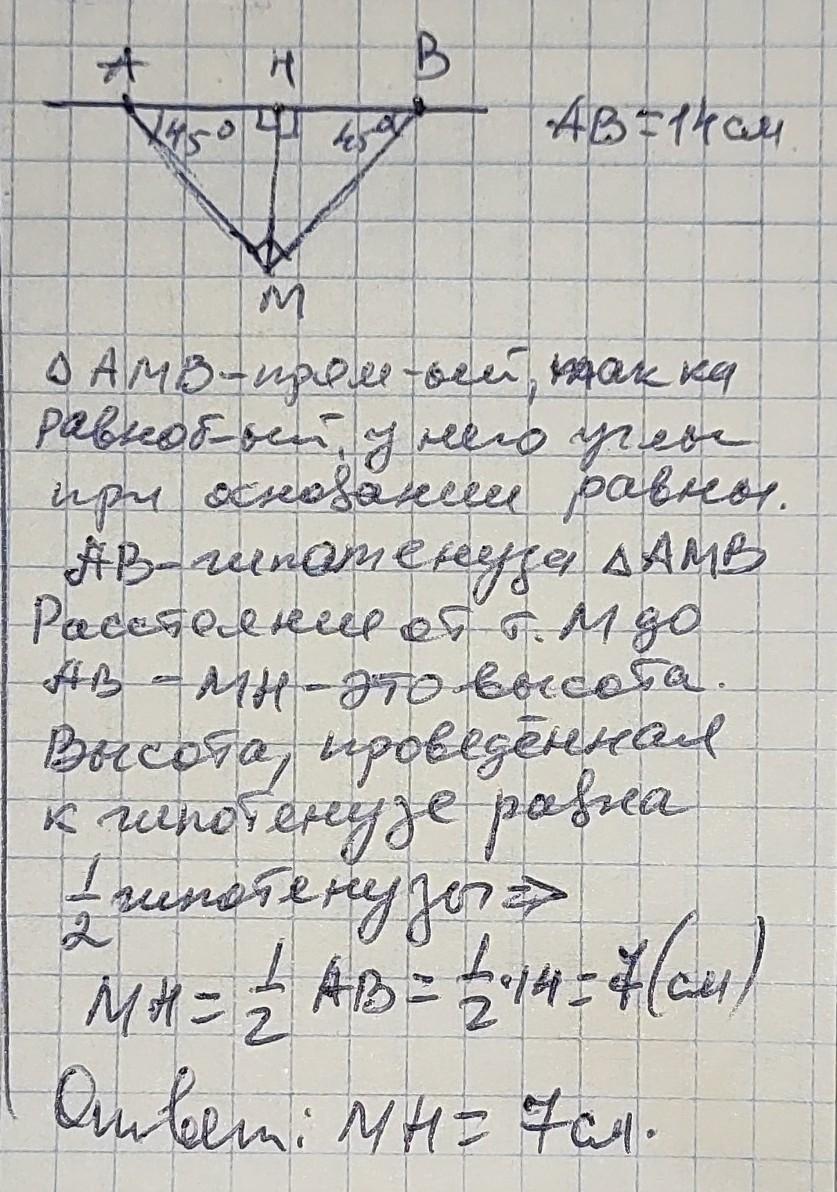 А Н В
45° 45° АВ=14см
М
Δ АМВ-прям-ый, так ка
равноб-ый, у него углы
при основании равны.
АВ-гипотенуза Δ АМВ
Расстояние от т. М до
АВ - МН - это высота.
Высота, проведённая
к гипотенузе равна
1/2 гипотенузы ⇒
МН = 1/2 АВ = 1/2·14 = 7(см)
Ответ: МН = 7см.